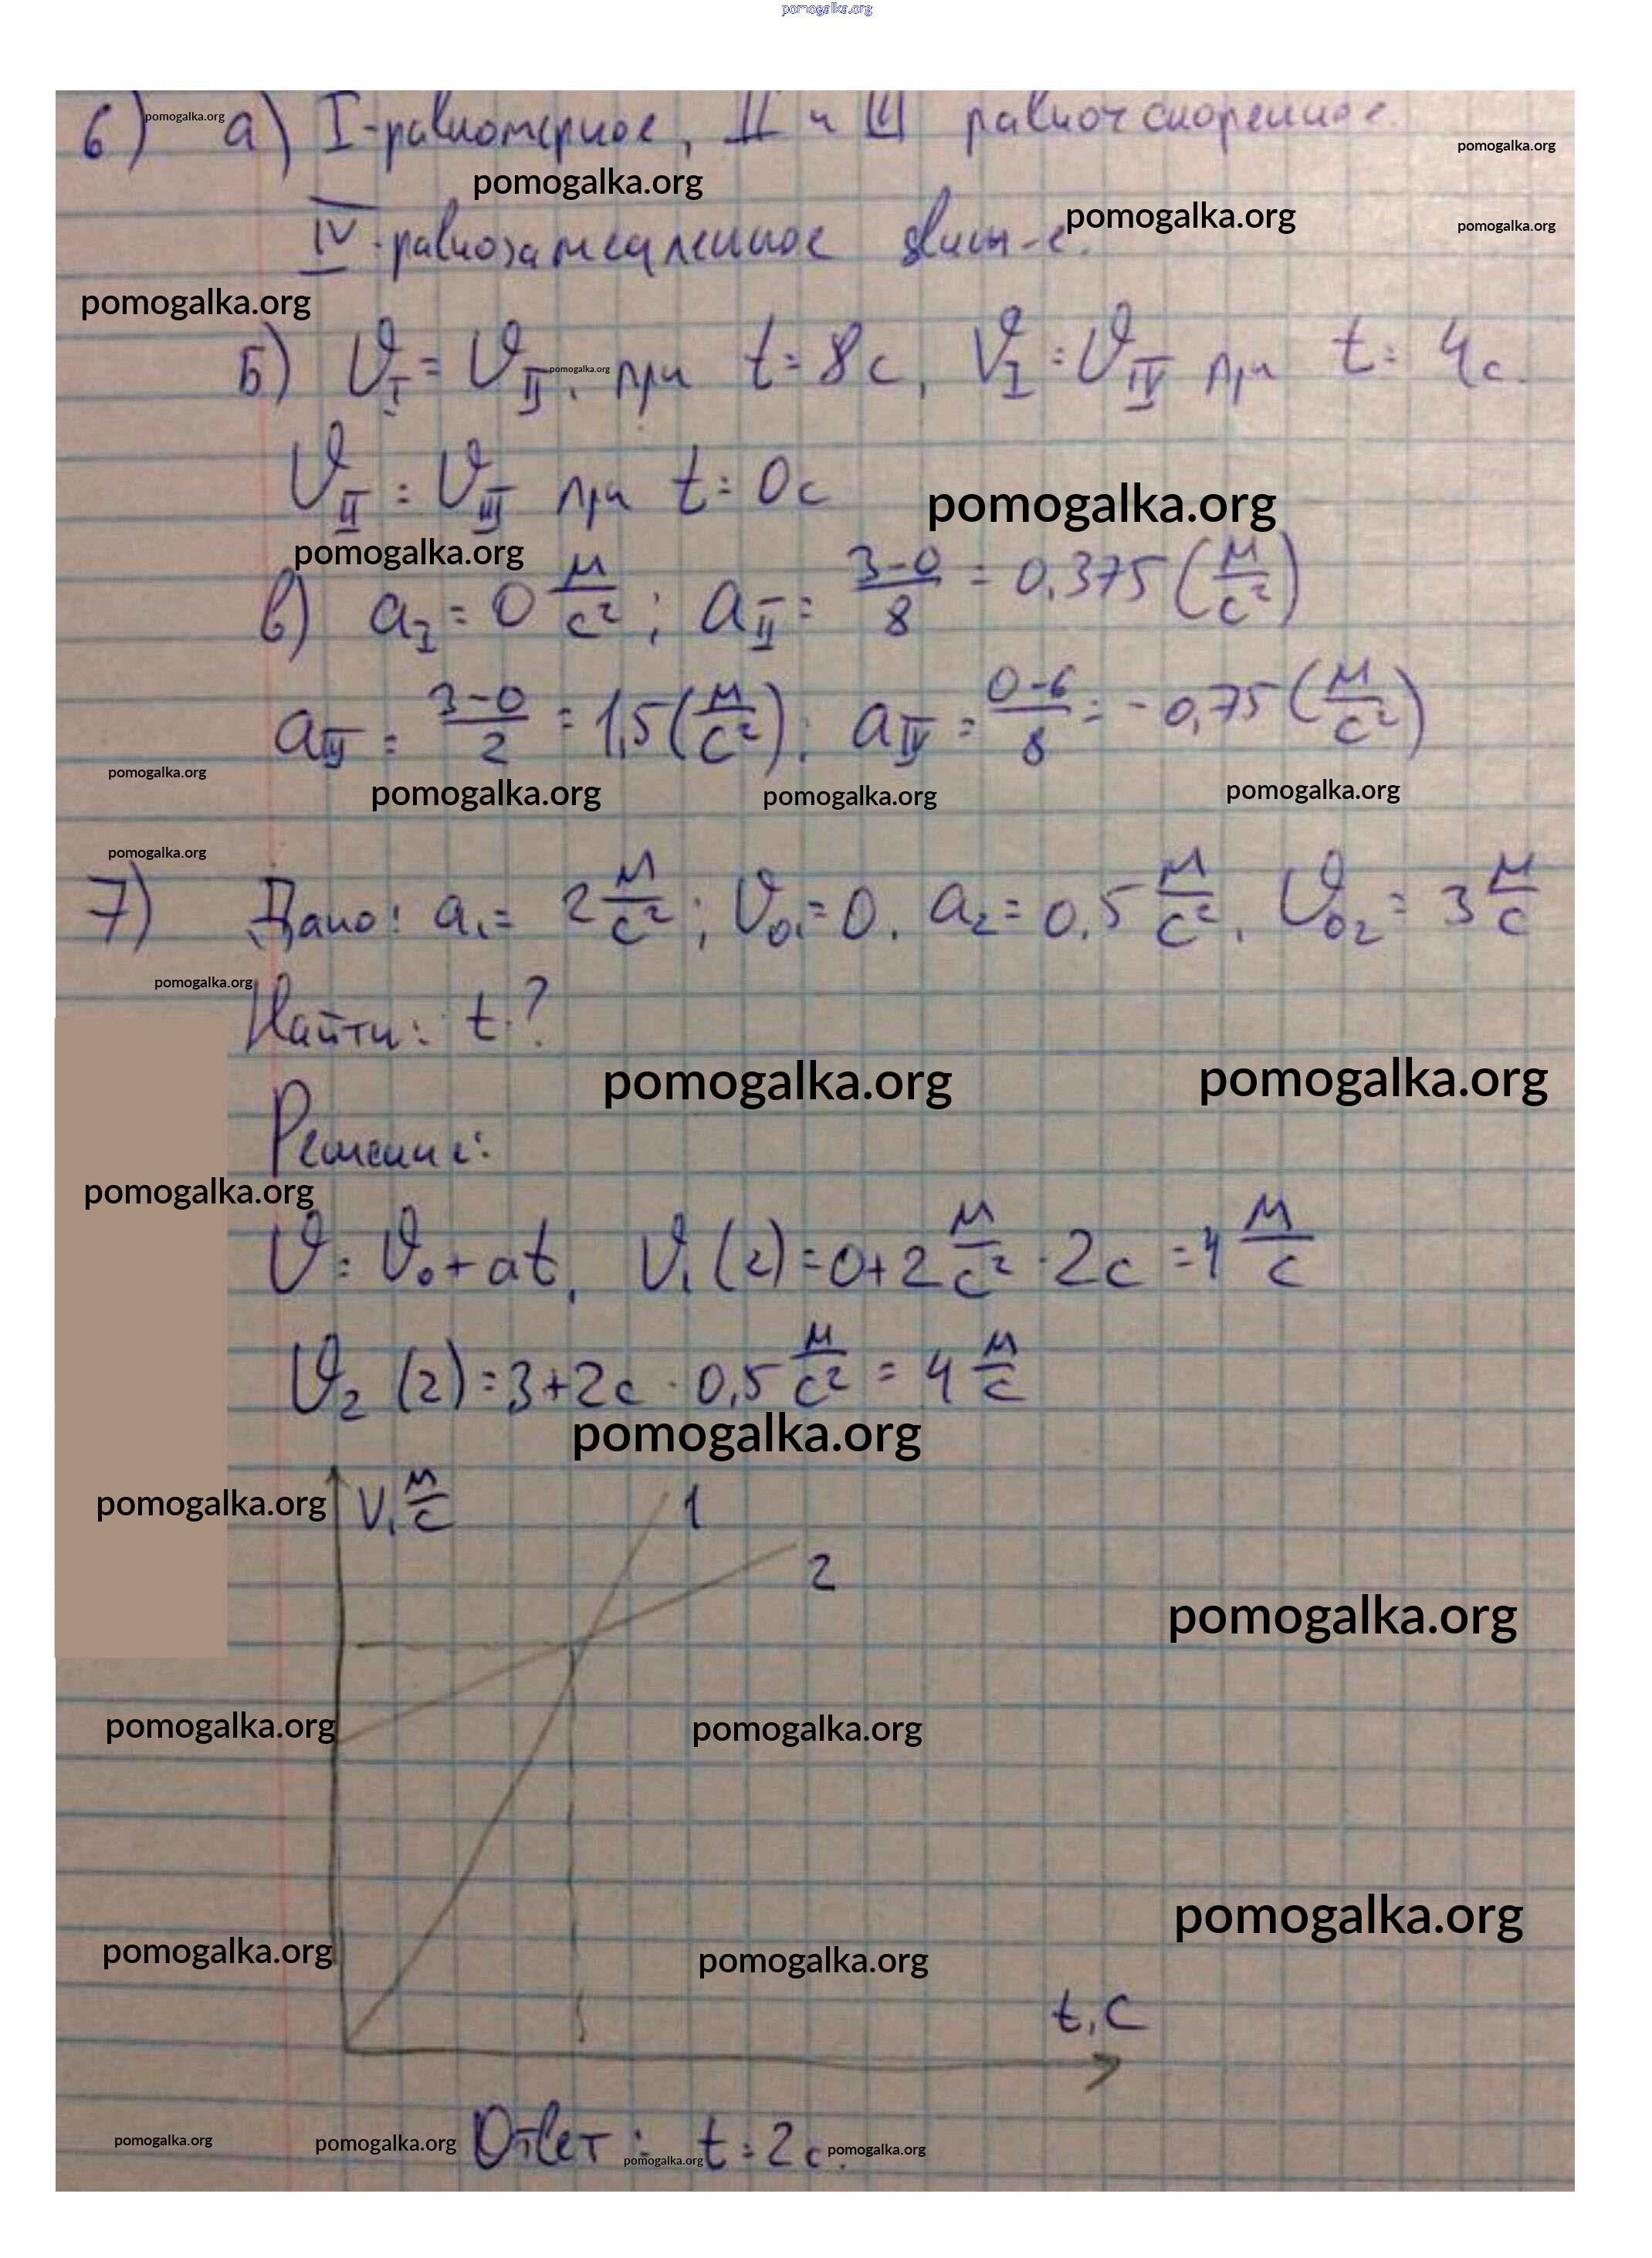 pomogalka.org
6) pomogalka.org а) I-равномерное, II и III равноускоренное.
pomogalka.org
pomogalka.org
IV-равнозамедленное движ-е. pomogalka.org pomogalka.org
pomogalka.org
Б) υ_I = υ_II pomogalka.org при t = 8с, υ_I = υ_IV при t = 4с.
υ_II = υ_III при t = 0с pomogalka.org
pomogalka.org
в) a_I = 0 м/с²; a_II = (3-0)/8 = 0,375 (м/с²)
a_III = (3-0)/2 = 1,5 (м/с²); a_IV = (0-6)/8 = -0,75 (м/с²)
pomogalka.org pomogalka.org pomogalka.org pomogalka.org
pomogalka.org
7) Дано: a₁ = 2 м/с²; υ₀₁ = 0. a₂ = 0,5 м/с². υ₀₂ = 3 м/с
pomogalka.org
Найти: t-?
pomogalka.org pomogalka.org
Решение:
pomogalka.org
υ = υ₀ + at, υ₁(2) = 0+2 м/с² · 2с = 4 м/с
υ₂(2) = 3+2с · 0,5 м/с² = 4 м/с
pomogalka.org
pomogalka.org V, м/с 1
2
pomogalka.org
pomogalka.org pomogalka.org
pomogalka.org
pomogalka.org pomogalka.org
t, с
pomogalka.org pomogalka.org Ответ: pomogalka.org t = 2с. pomogalka.org